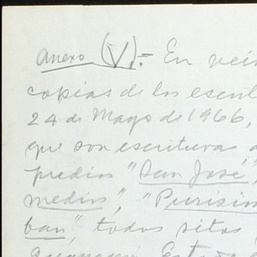 Anexo (V):- En vein
copias de los escrit
24 de Mayo de 1966,
que son escrituras d
predios "San José",
medios", "Purísim
ban", todos sitos